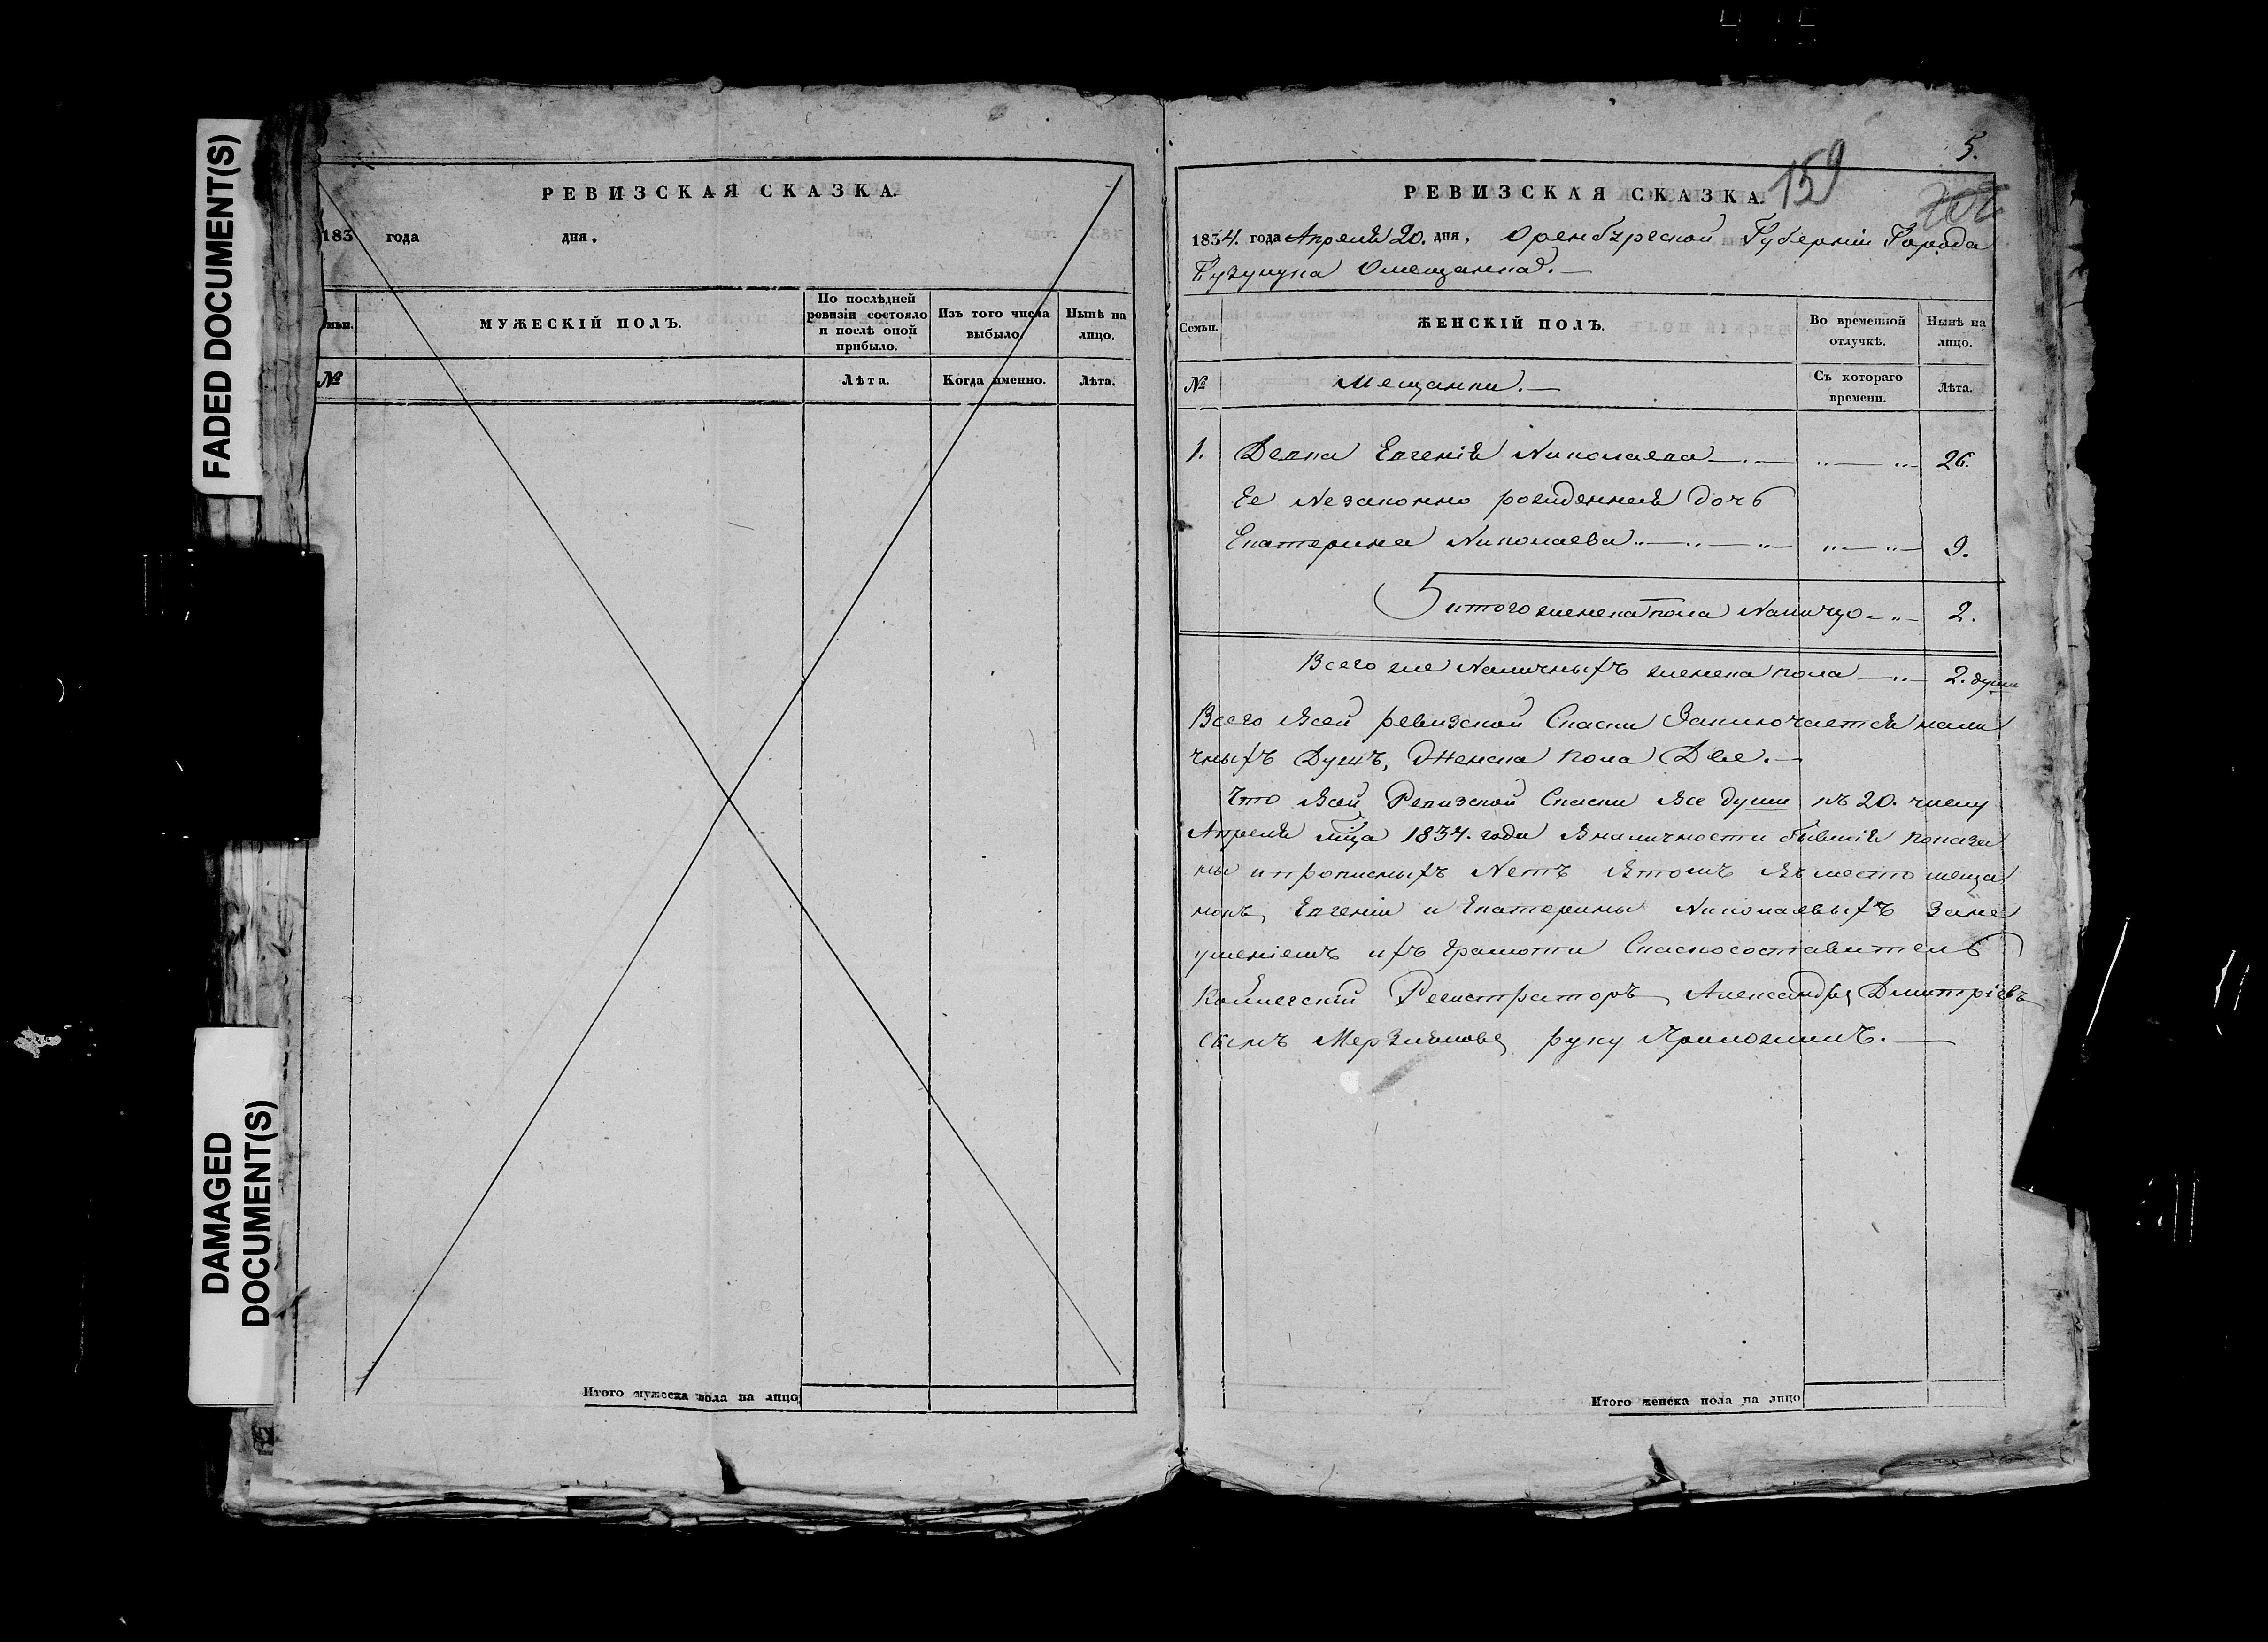 FADED DOCUMENT(S)
DAMAGED
DOCUMENT(S)
РЕВИЗСКАЯ СКАЗКА.
183 года дня.
МУЖЕСКІЙ ПОЛЪ.
По послѣдней
ревизіи состояло
и послѣ оной
прибыло.
Изъ того числа
выбыло.
Нынѣ на
лицо.
№
Лѣта.
Когда именно.
Лѣта.
Итого мужеска пола на лицо
5.
159
РЕВИЗСКАЯ СКАЗКА.
1834. года Апреля 20. дня, Оренбургской Губернии Города
Бузулука Омещанкад.
Семьи.
ЖЕНСКІЙ ПОЛЪ.
Во временной
отлучкѣ.
Нынѣ на
лицо.
№
Мещанки.
Съ котораго
времени.
Лѣта.
1. Девка Евгенія Николаева 26.
Ее Незаконно рожденная дочь
Екатерина Николаева 9.
итого женска пола Налицо 2.
Всего же Наличныхъ женска пола 2. души
Всего всей ревизской Скаски Заключается нали
чныхъ Душъ, Женска пола Две.
Что всей Ревизской Скаски все души къ 20. числу
Апреля мца 1834. года вналичности бывшія показа
ны ипрописныхъ Нетъ втомъ въместо меща
нокъ, Евгеніи и Екатерины Николаевыхъ Зане
уменіемъ ихъ Грамоти Скаскосоставитель
Коллегскій Регистраторъ Александръ Дмитріевъ
сынъ руку Приложилъ.
Итого женска пола на лицо